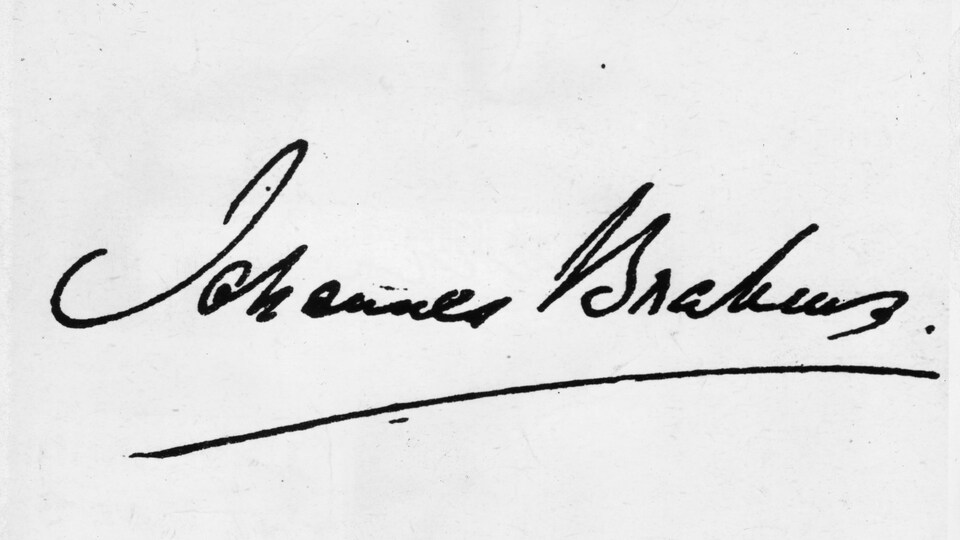 Johannes Brahms.